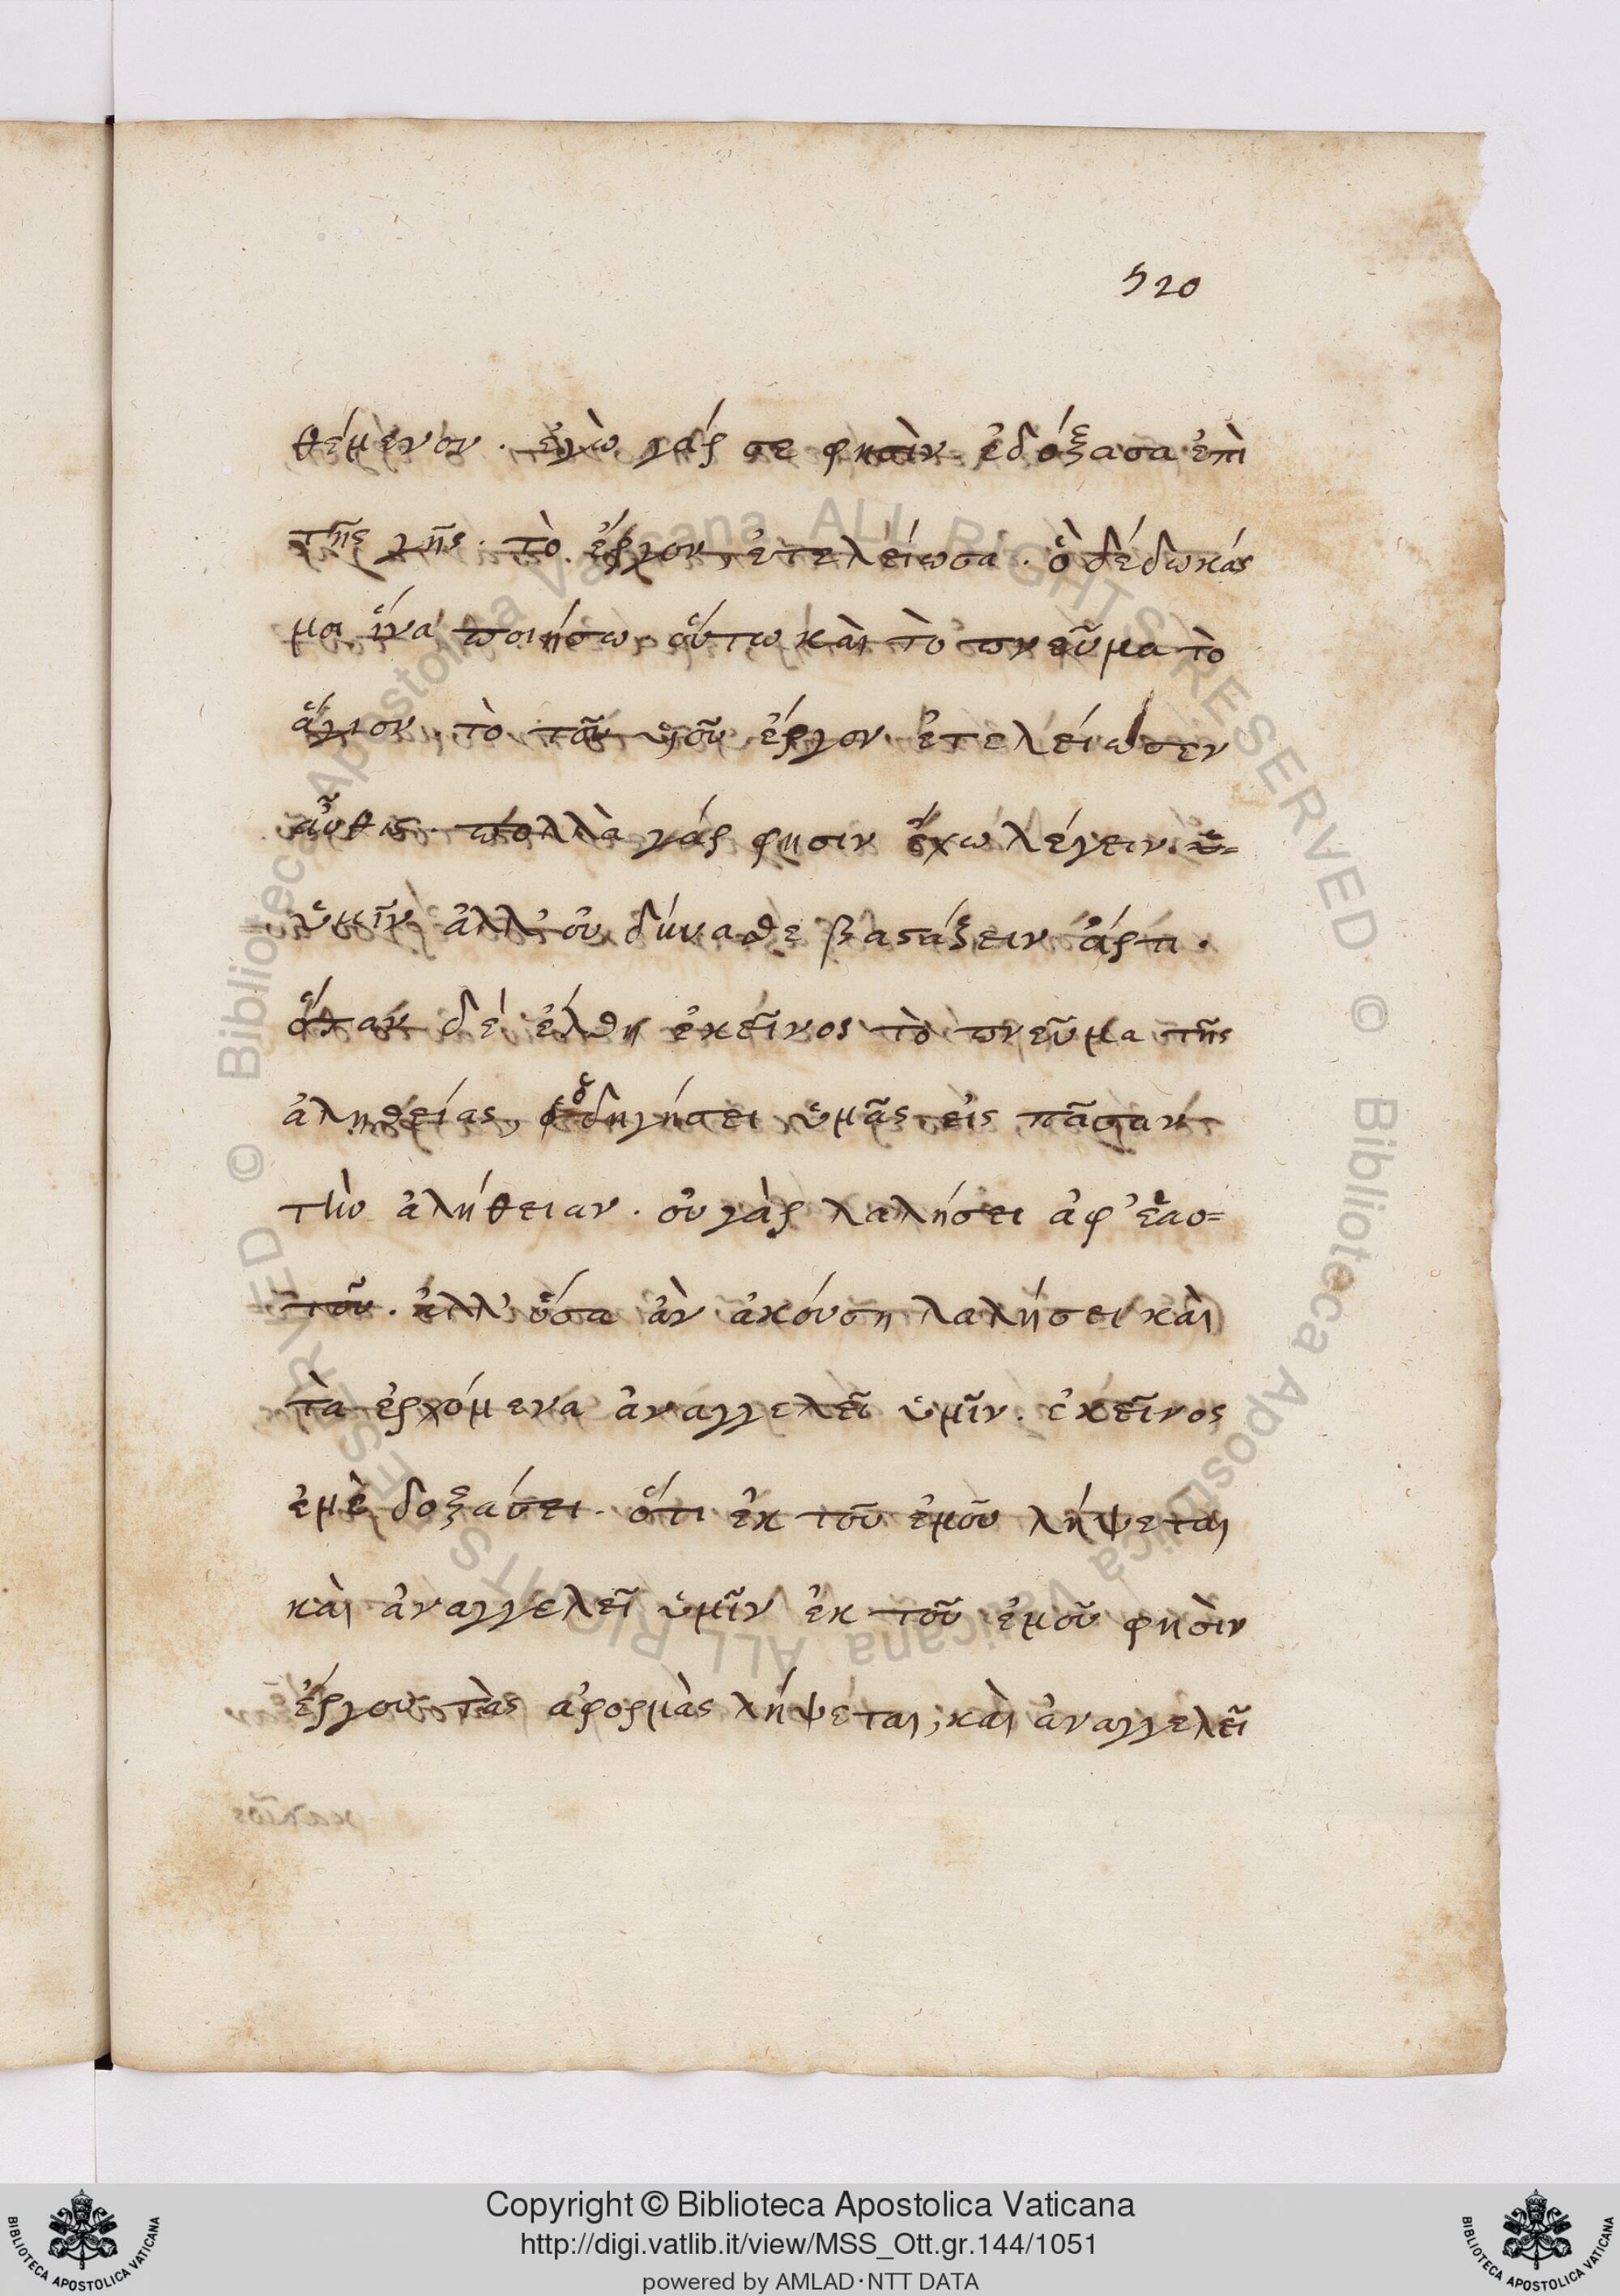 520
θέμενον. ἐγὼ γάρ σε φησὶν ἐδόξασα ἐπὶ
τῆς γῆς. τὸ ἔργον, ἐτελείωσα. ὃ δέδωκάς
μοι ἵνα ποιήσω. οὕτω καὶ τὸ πνεῦμα τὸ
ἅγιον, τὸ τοῦ υἱοῦ ἔργον ἐτελείωσεν
αὖθις. πολλὰ γάρ φησιν ἔχω λέγειν ὑ=
ὑμῖν ἀλλ' οὐ δύνασθε βαστάζειν ἄρτι.
ὅταν δέ ἔλθη ἐκεῖνος τὸ πνεῦμα τῆς
ἀληθείας, ὁδηγήσει ὑμᾶς εἰς πᾶσαν
τὴν ἀλήθειαν. οὐ γὰρ λαλήσει ἀφ' ἑαυ=
τοῦ. ἀλλ' ὅσα ἀν ἀκόυση λαλήσει καὶ
τὰ ἐρχόμενα ἀναγγελεῖ ὑμῖν. ἐκεῖνος
ἐμὲ δοξάσει. ὅτι ἐκ τοῦ ἐμοῦ λήψεται
καὶ ἀναγγελεῖ ὑμῖν ἐκ τοῦ ἐμοῦ φησὶν
ἔργου τὰς ἀφορμὰς λήψεται, καὶ ἀναγγελεῖ
© Biblioteca Apostolica Vaticana ALL RIGHTS RESERVED © Biblioteca Apostolica Vaticana ALL RIGHTS RESERVED
Copyright © Biblioteca Apostolica Vaticana
http://digi.vatlib.it/view/MSS_Ott.gr.144/1051
powered by AMLAD·NTT DATA
BIBLIOTECA APOSTOLICA VATICANA
BIBLIOTECA APOSTOLICA VATICANA